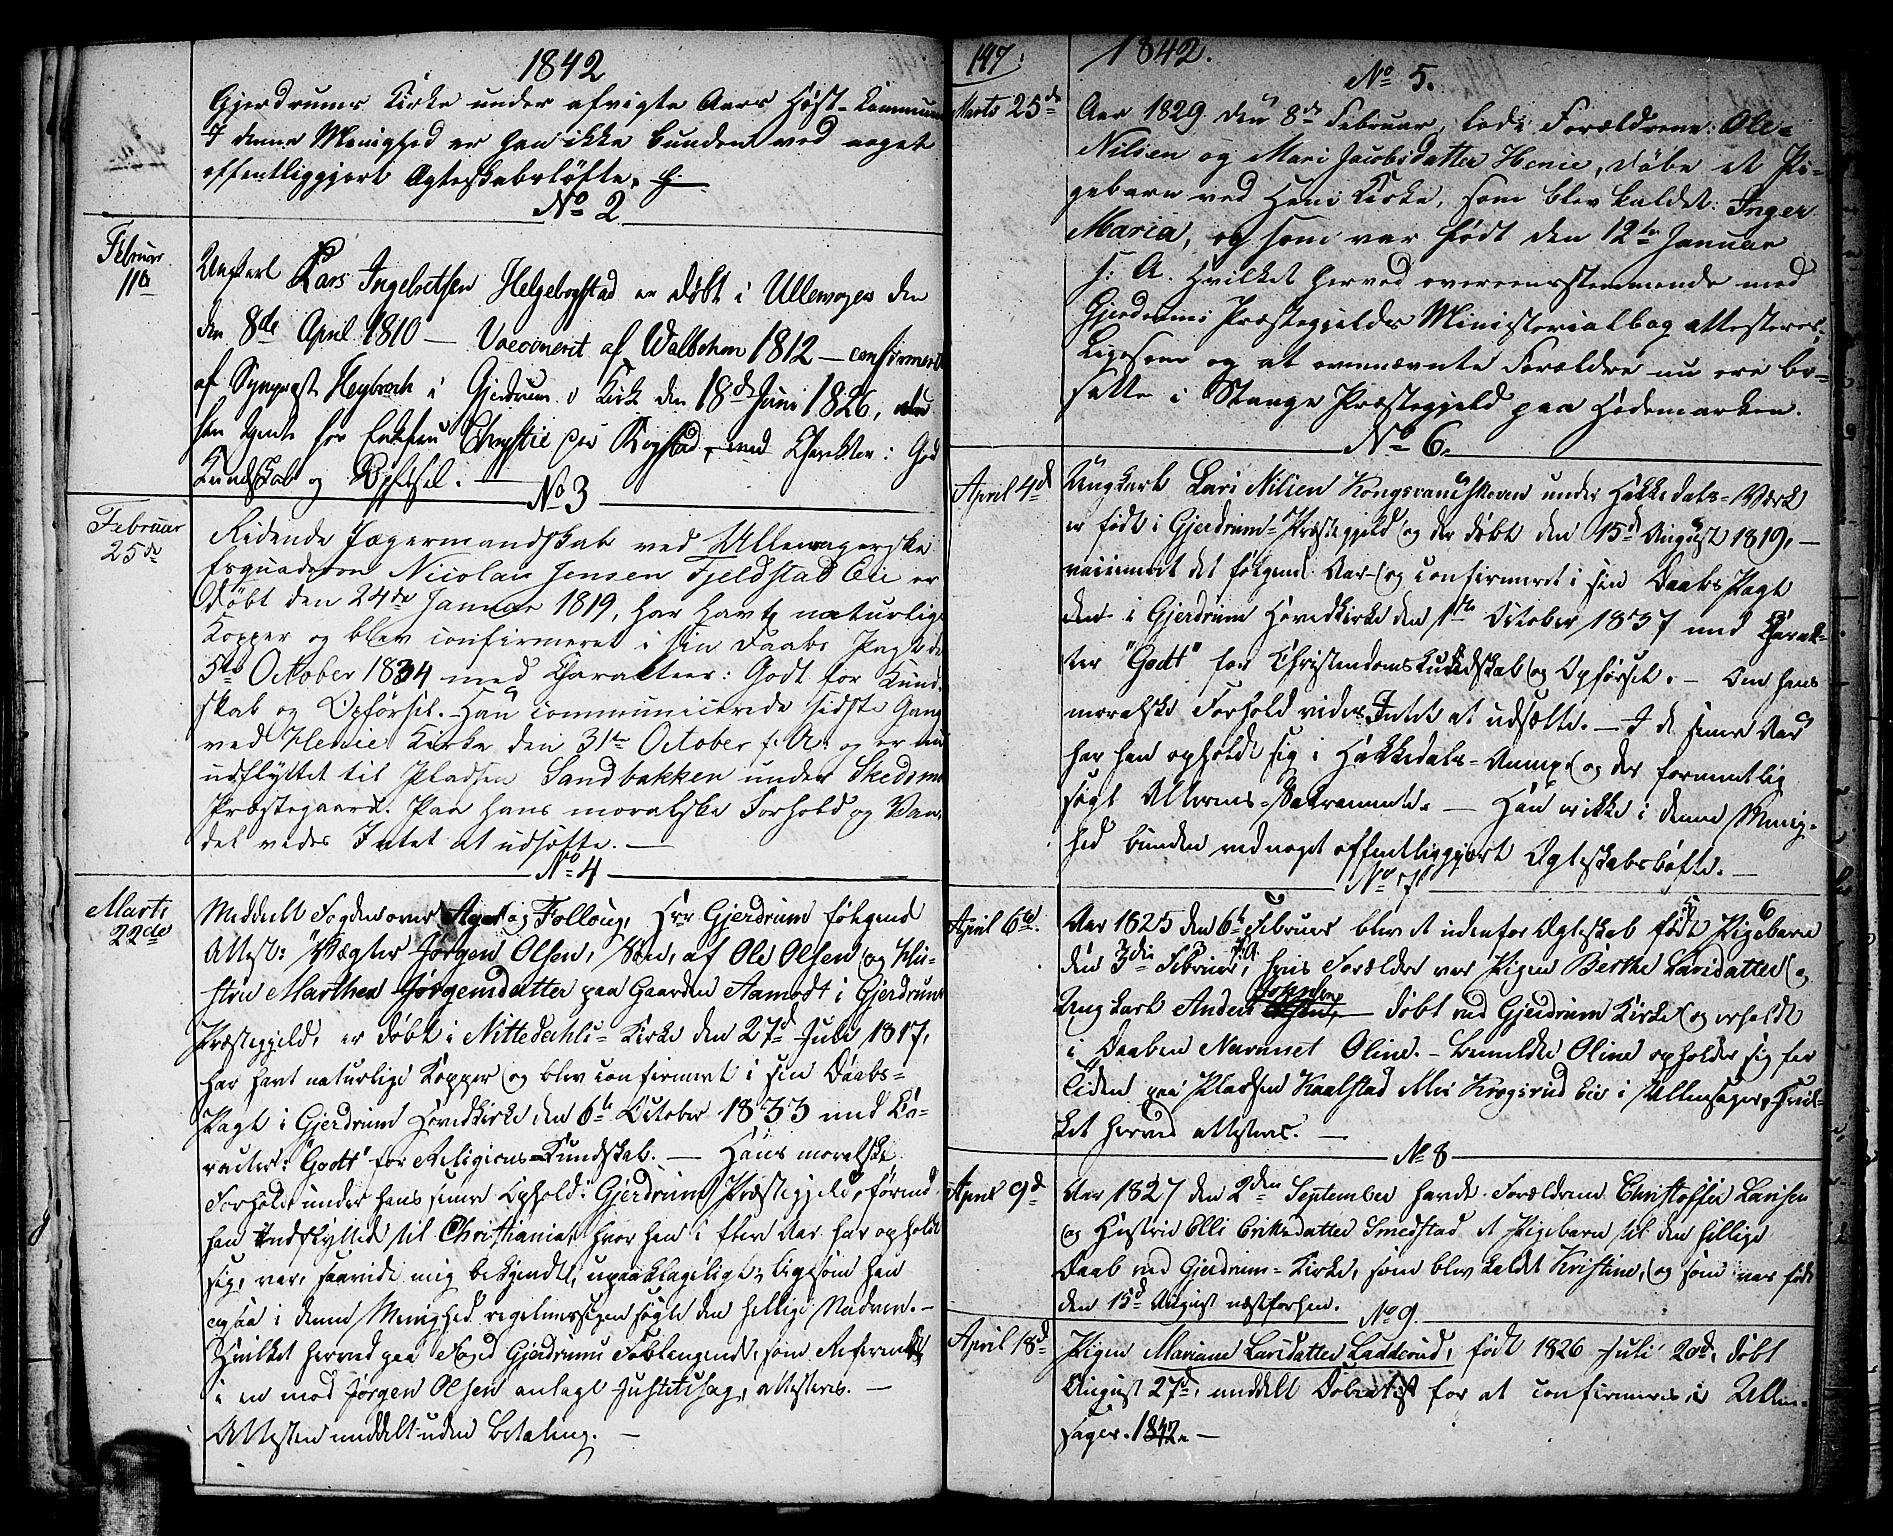 1842
Gjerdrums Kirke under afvigte Aars Høst-Commun
I denne Menighed er han ikke bunden ved noget
offentliggjort Ægteskabsløfte.
No 2
Februar
11te
Ungkarl Lars Ingebretsen Helgebogstad er døbt i Ullensager den
den 8de April 1810 — Vaccineret af Walbohm 1812 — confirmeret
af Heybroch i Gjerdrum Kirke den 18de Juni 1826,
Kundskab og Opførsel. —
No 3
Februar
25de
Ridende Jægermandskab ved Ullensagerske
Esquadron Nicolai Jensen Fjeldstad Eie er
døbt den 24de Januar 1819, har havt naturlige
Kopper og blev confirmeret i sin Daabs Pagt d.
5te October 1834 med Charakteer: Godt for Kund-
skab og Opførsel. Han communicerede sidste Gang
ved Henie Kirke den 31te October f: A: og er nu
udflyttet til Pladsen Sandbakken under Skedsmo
Præstegaard. Paa hans moralske Forhold og Van-
del vides Intet at udsætte. —
No 4
Marts
22de
Meddelt Fogden over Ager og Folloug, Hrr Gjerdrum følgende
Attest: "Vægter Jørgen Olsen, Søn af Ole Olsen og Hu-
strue Marthea Jørgensdatter paa Gaarden Aamodt i Gjerdrums
Præstegjeld, er døbt i Nittedahls Kirke den 27de Juli 1817,
har havt naturlige Kopper og blev confirmeret i sin Daabs-
Pagt i Gjerdrum Hovedkirke den 6te October 1833 med Ca-
racter: "Godt" for Religions-Kundskab. — Hans moralske
Forhold under hans senere Ophold i Gjerdrum Præstegjeld, førend
han udflyttede til Christiania, hvor han i flere Aar har opholdt
sig, var, saavidt mig bekjendt, upaaklageligt; ligesom han
ogsaa i denne Menighed regelmæssigen søgte den hellige Nadver. —
Hvilket herved paa Foged Gjerdrums Forlangende, som Referent
i en mod Jørgen Olsen anlagt Justitssag, attesteres. —
Attesten meddelt uden Betaling. —
197.
1842.
No 5.
Marts 25de
Aar 1829 den 8de Februar, lode Forældrene: Ole
Nilsen og Mari Jacobsdatter Henie, døbe et Pi-
gebarn ved Heni Kirke, som blev kaldet: Inger
Maria, og som var født den 12te Januar
s: A. Hvilket herved overeensstemmende med
Gjerdrums Præstegjelds Ministerialbog attesteres,
Ligesom og at ovennævnte Forældre nu ere bo-
satte i Stange Præstegjeld paa Hedemarken.
No 6.
April 4de
Ungkarl Lars Nilsen Kongsvandskoven under Hakkedals-Værk
er født i Gjerdrum-Præstegjeld og der døbt den 15de August 1819, —
vaccineret det følgende Aar og confirmeret i sin Daabs Pagt
den i Gjerdrum Hovedkirke den 1ste October 1837 med Charak-
ter "Godt" for Christendomskundskab og Opførsel. — Om hans
moralske Forhold vides Intet at udsætte. — I de senere Aar
har han opholdt sig i Hakkedals-Annex og der formentlig
søgt Alterens-Sacramente. — Han er ikke i denne Menig-
hed bunden ved noget offentliggjort Ægteskabsløfte. —
No 7
April 6te.
Aar 1825 den 6te Februar blev et udenfor Ægteskab født Pigebarn
den 3die Februar f.A., hvis Forældre var Pigen Berthe Larsdatter og
Ungkarl Anders — døbt ved Gjerdrum Kirke og erholdt
i Daaben Navnet Oline. — Bemeldte Oline opholder sig for
Tiden paa Pladsen Kaalstad Krogsrud Eie i Ullensager, Hvil-
ket herved attesteres. —
No 8
April 9de
Aar 1827 den 2den September havde Forældrene Christoffer Larsen
og Hustrue Elli Eriksdatter Smedstad et Pigebarn til den hellige
Daab ved Gjerdrum-Kirke, som blev kaldet Kristine, og som var født
den 15de August næstforhen.
No 9.
April 18de
Pigen Mariane Larsdatter Ladderud, født 1826 Juli 20de, døbt
August 27de, meddelt Døbeattest for at confirmeres i Ullen-
sager. 1842. —